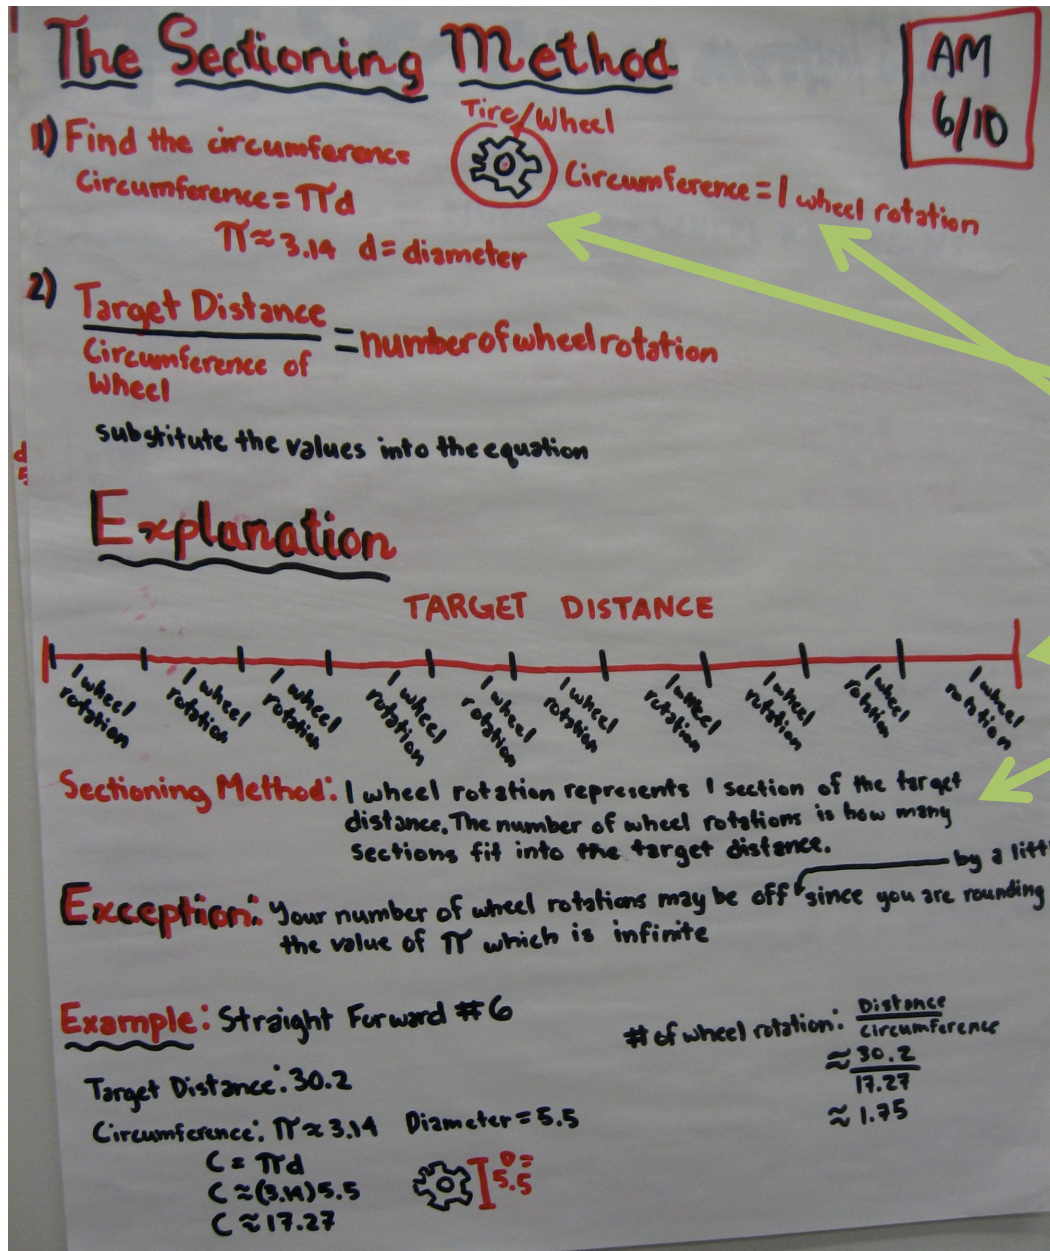 The Sectioning Method
AM
6/10
1) Find the circumference
Circumference = πd
π ≈ 3.14 d = diameter
Tire/Wheel
Circumference = 1 wheel rotation
2) Target Distance
Circumference of
Wheel
= number of wheel rotation
substitute the values into the equation
Explanation
TARGET DISTANCE
1 wheel rotation
1 wheel rotation
1 wheel rotation
1 wheel rotation
1 wheel rotation
1 wheel rotation
1 wheel rotation
1 wheel rotation
1 wheel rotation
1 wheel rotation
Sectioning Method: 1 wheel rotation represents 1 section of the target
distance. The number of wheel rotations is how many
sections fit into the target distance.
by a
Exception: Your number of wheel rotations may be off since you are rounding
the value of π which is infinite
Example: Straight Forward #6
Target Distance: 30.2
Circumference: π ≈ 3.14 Diameter = 5.5
C = πd
C ≈ (3.14) 5.5
C ≈ 17.27
D =
5.5
# of wheel rotation: Distance
Circumference
≈ 30.2
17.27
≈ 1.75